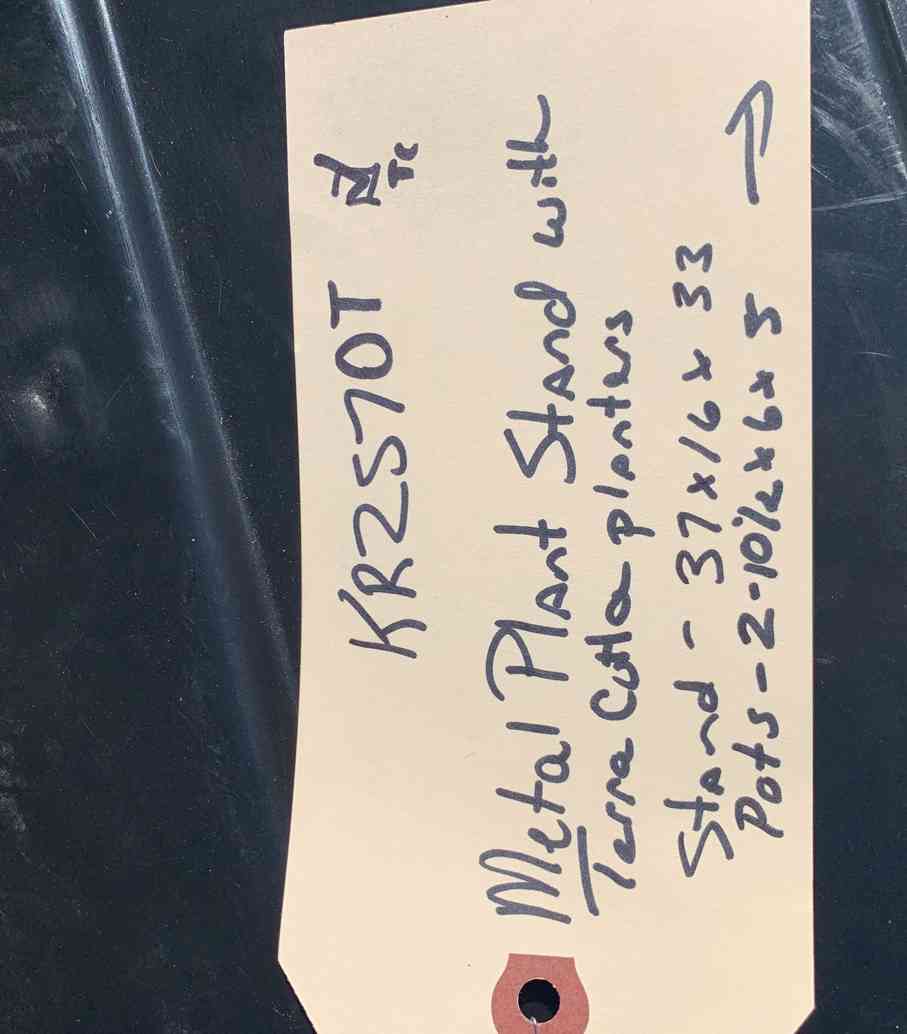 KR2570T
TC
Metal Plant Stand with
Terra Cotta planters
Stand - 37x16x33
Pots - 2 - 10 1/2 x 6 x 5 →